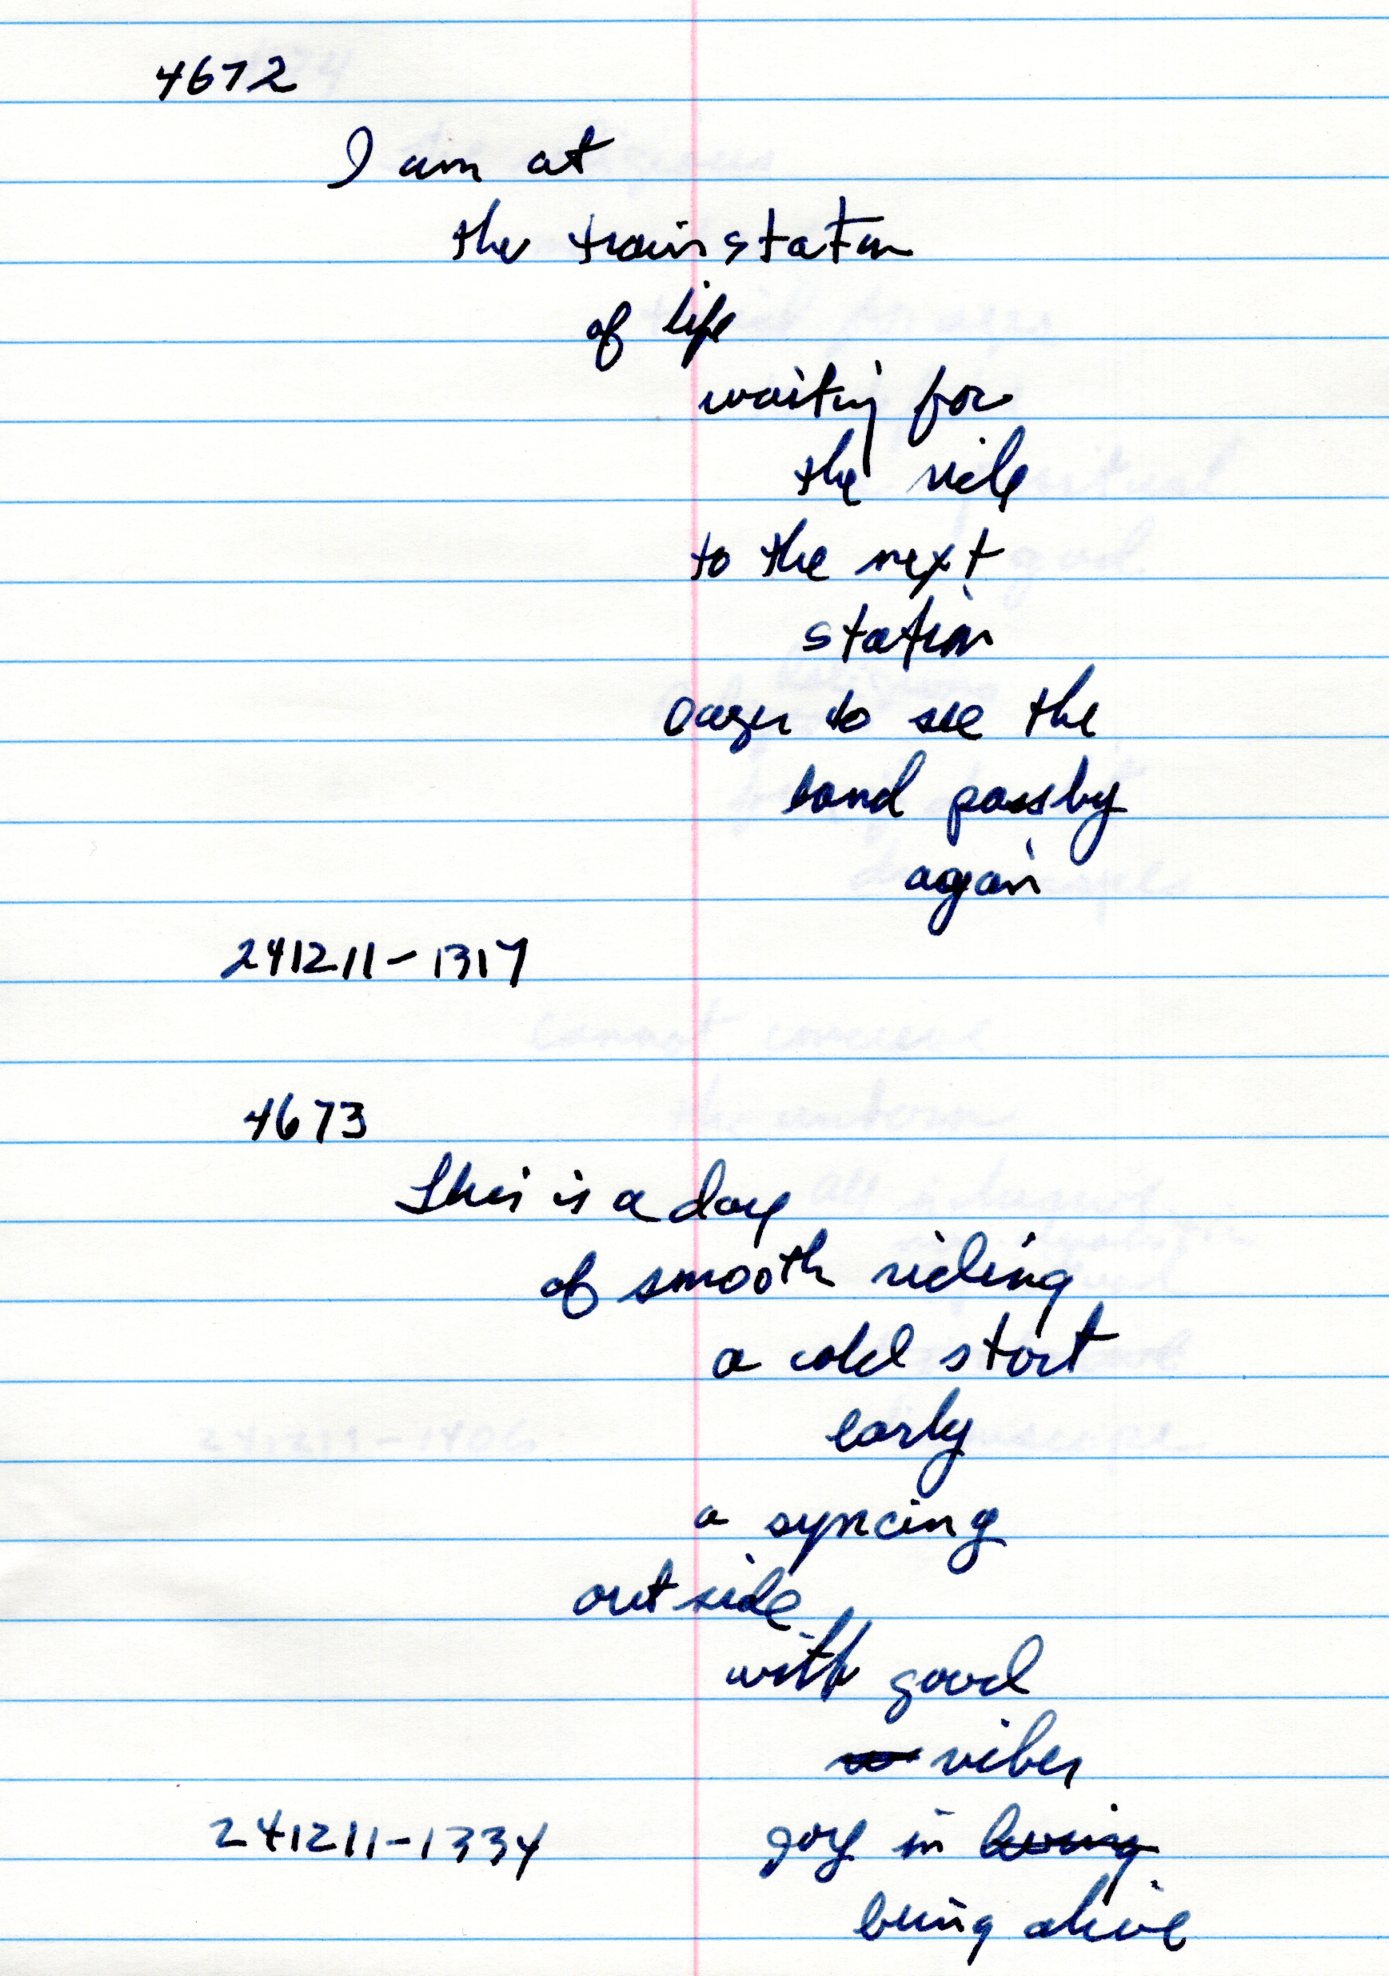 4672
I am at
the train station
of life
waiting for
the ride
to the next
station
eager to see the
land pass by
again
241211-1317
4673
This is a day
of smooth riding
a cold start
early
a syncing
outside
with good
vibes
241211-1334 joy in being
being alive